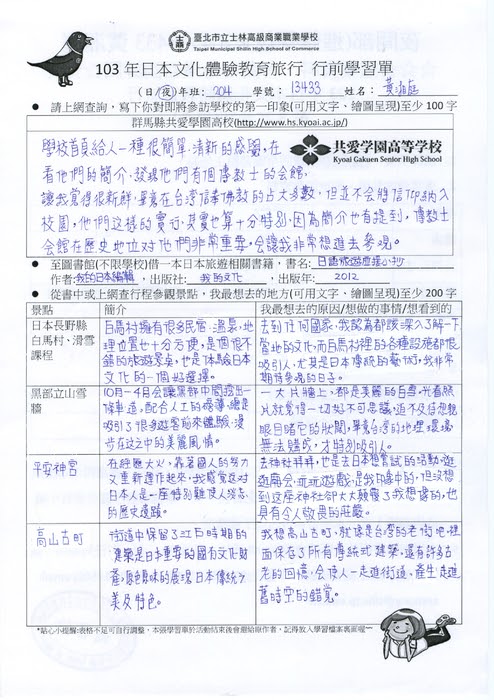 臺北市立士林高級商業職業學校
Taipei Municipal Shilin High School of Commerce
103 年日本文化體驗教育旅行 行前學習單
(日夜)年班:204 學號:13433 姓名:黃
● 請上網查詢,寫下你對即將參訪學校的第一印象(可用文字、繪圖呈現)至少 100 字
群馬縣共愛學園高校(http://www.hs.kyoai.ac.jp/)
学校首頁給人一種很簡單、清新的感覺,在
看他們的簡介,發現他們有個傳教士的会館,
讓我覺得很新鮮,畢竟在台灣信奉佛教的占大多數,但並不会將信仰納入
校園,他們這樣的實行,其實也算十分特別,因為簡介也有提到,傳教士
会館在歷史地位对他們非常重要,会讓我非常想進去參觀。
共愛学園高等学校
Kyoai Gakuen Senior High School
● 至圖書館(不限學校)借一本日本旅遊相關書籍,書名:日語旅遊應講小抄
作者:我的日本編輯,出版社:我的文化,出版年:2012
● 從書中或上網查行程參觀景點,我最想去的地方(可用文字、繪圖呈現)至少 200 字
景點 簡介 我最想去的原因/想做的事情/想看到的
日本長野縣
白馬村、滑雪
課程
白馬村擁有很多民宿、溫泉,地
理位置也十分方便,是個很不
錯的旅遊景点,也是体驗日本
文化的一個好選擇。
去到任何國家,我認為都該深入了解一下
當地的文化,而白馬村裡的各種設施都很
吸引人,尤其是日本傳統的藝術,我非常
期待參觀的日子。
黑部立山雪
牆
10月-4月会讓黑部中間露出一
條車道,配合人工的掃導,總是
吸引了很多遊客前來体驗,漫
步在這之中的美麗風情。
一大片牆上,都是美麗的白雪,光看照
片就覺得一切好不可思議,迫不及待想親
眼目睹它的狀闊,畢竟台灣的地理環境
無法賭成,才特別吸引人。
平安神宮
在經歷大火,靠著國人的努力
又重新運作起來,我感覺這对
日本人是一座特別難使人忘志
的歷史遺蹟。
去神社拜拜,也是去日本想嘗試的活動,逛
逛廟会,玩玩遊戲,是我印象中的,但沒想
到這座神社卻大大顛覆了我想像的,也
具有令人敬畏的莊嚴。
高山古町
街道中保留了江戶時期的
建築是日本重要的國有文化財
產,原色原味的展現日本傳統之
美及特色。
我想高山古町,就像是台灣的老街吧,裡
面保存了所有傳統式建築,還有許多古
老的回憶,会使人一走進街道,產生走進
舊時空的錯覺。
*貼心小提醒:表格不足可自行調整,本張學習單於活動結束後會還給原作者,記得放入學習檔案裏面喔~~